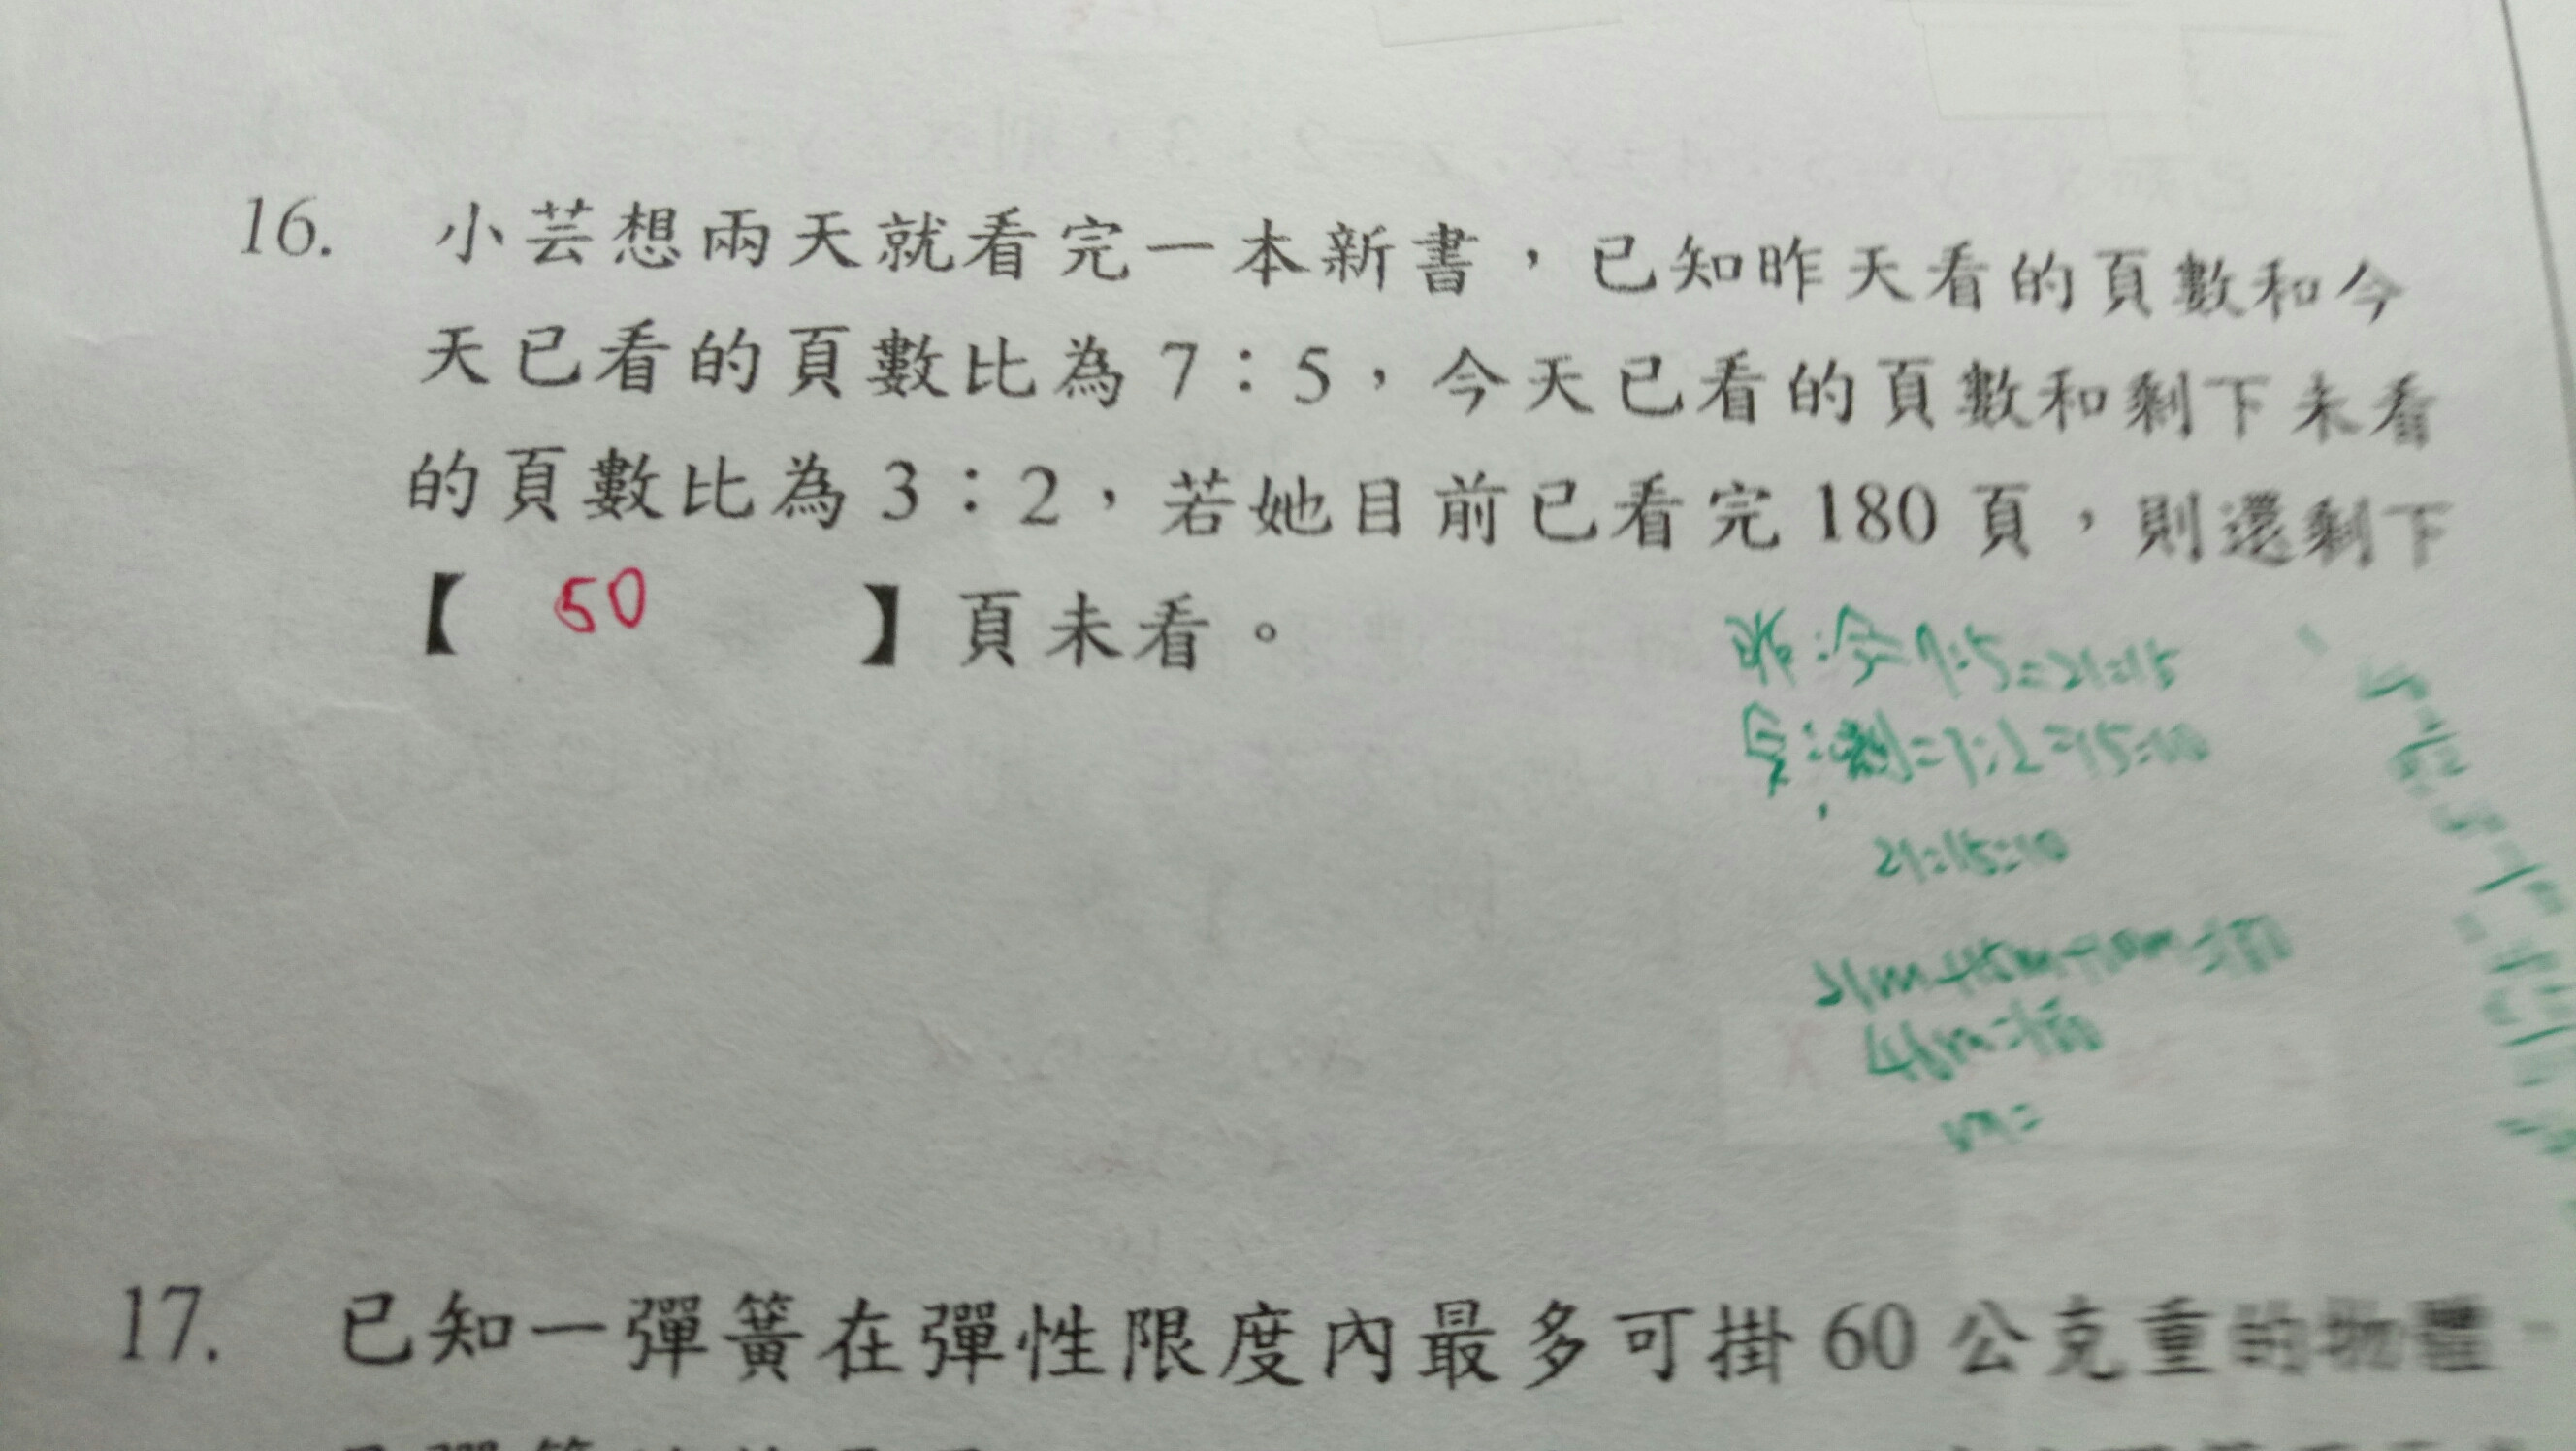 16. 小芸想兩天就看完一本新書，已知昨天看的頁數和今
天已看的頁數比為 7：5，今天已看的頁數和剩下未看
的頁數比為 3：2，若她目前已看完 180 頁，則還剩下
【 50 】頁未看。
昨:今=7:5=21:15
今:剩=3:2=15:10
21:15:10
21m+15m+10m=180
46m=180
m=
17. 已知一彈簧在彈性限度內最多可掛 60 公克重的物體